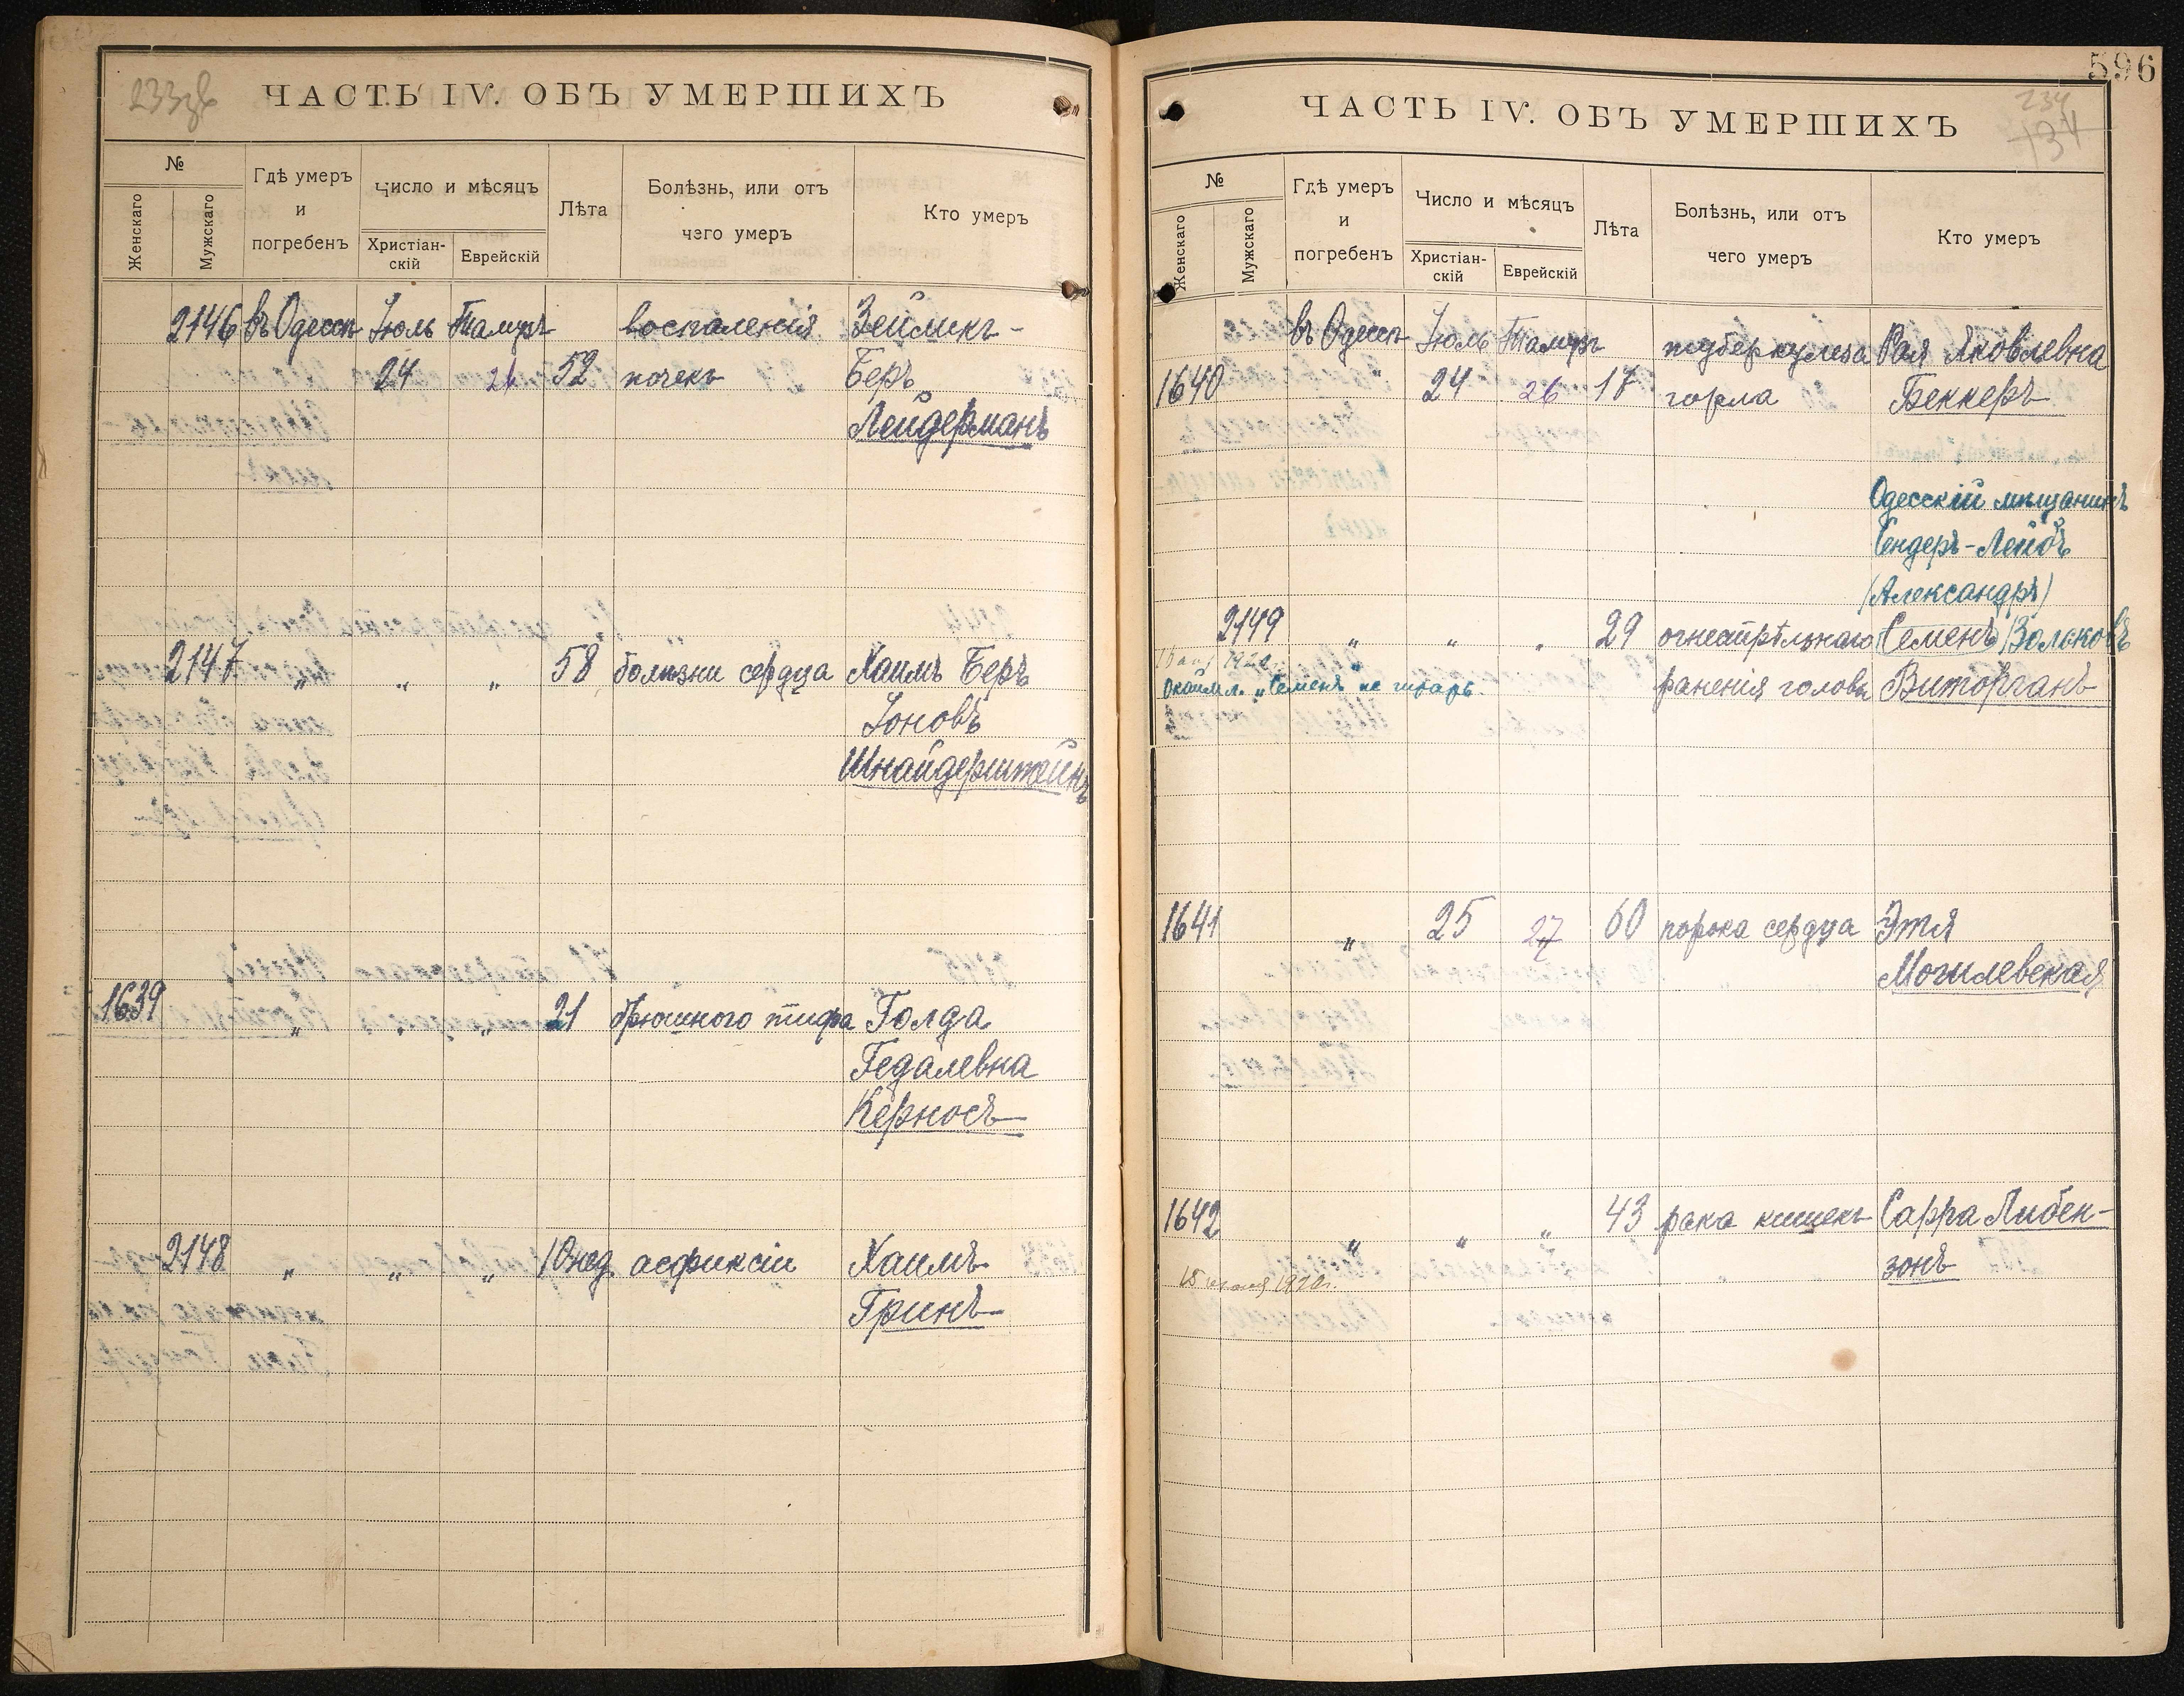 ЧАСТЬ IV. ОБЪ УМЕРШИХЪ
№
Женскаго
Мужскаго
Гдѣ умеръ
и
погребенъ
Число и мѣсяцъ
Христіан-
скій
Еврейскій
Лѣта
Болѣзнь, или отъ
чего умеръ
Кто умеръ
2146 въ Одессѣ Іюль Тамузъ воспаленія Зейликъ-
24 26 52 почекъ Беръ
Лейдерманъ
2147 „ „ „ 58 болѣзни сердца Хаимъ Беръ
Іоновъ
Шнайдерштейнъ
1639 „ „ „ 21 брюшного тифа Голда
Гедалевна
Керносъ
2148 „ „ „ 10 нед. асфиксіи Хаимъ
Гринъ
596
234
134
ЧАСТЬ IV. ОБЪ УМЕРШИХЪ
№
Женскаго
Мужскаго
Гдѣ умеръ
и
погребенъ
Число и мѣсяцъ
Христіан-
скій
Еврейскій
Лѣта
Болѣзнь, или отъ
чего умеръ
Кто умеръ
въ Одессѣ Іюль Тамузъ туберкулеза Рая Яковлевна
1640 24 26 17 горла Беккеръ
Одесскій мѣщанинъ
Сендеръ-Лейбъ
(Александръ)
2149 „ „ „ 29 огнестрѣльнаго (Семенъ) Зольковъ
1920
„Семенъ не
раненія головы Виторганъ
1641 „ 25 27 60 порока сердца Этя
Могилевская
1642 „ „ „ 43 рака кишекъ Сарра Либен-
зонъ
15 1920г.